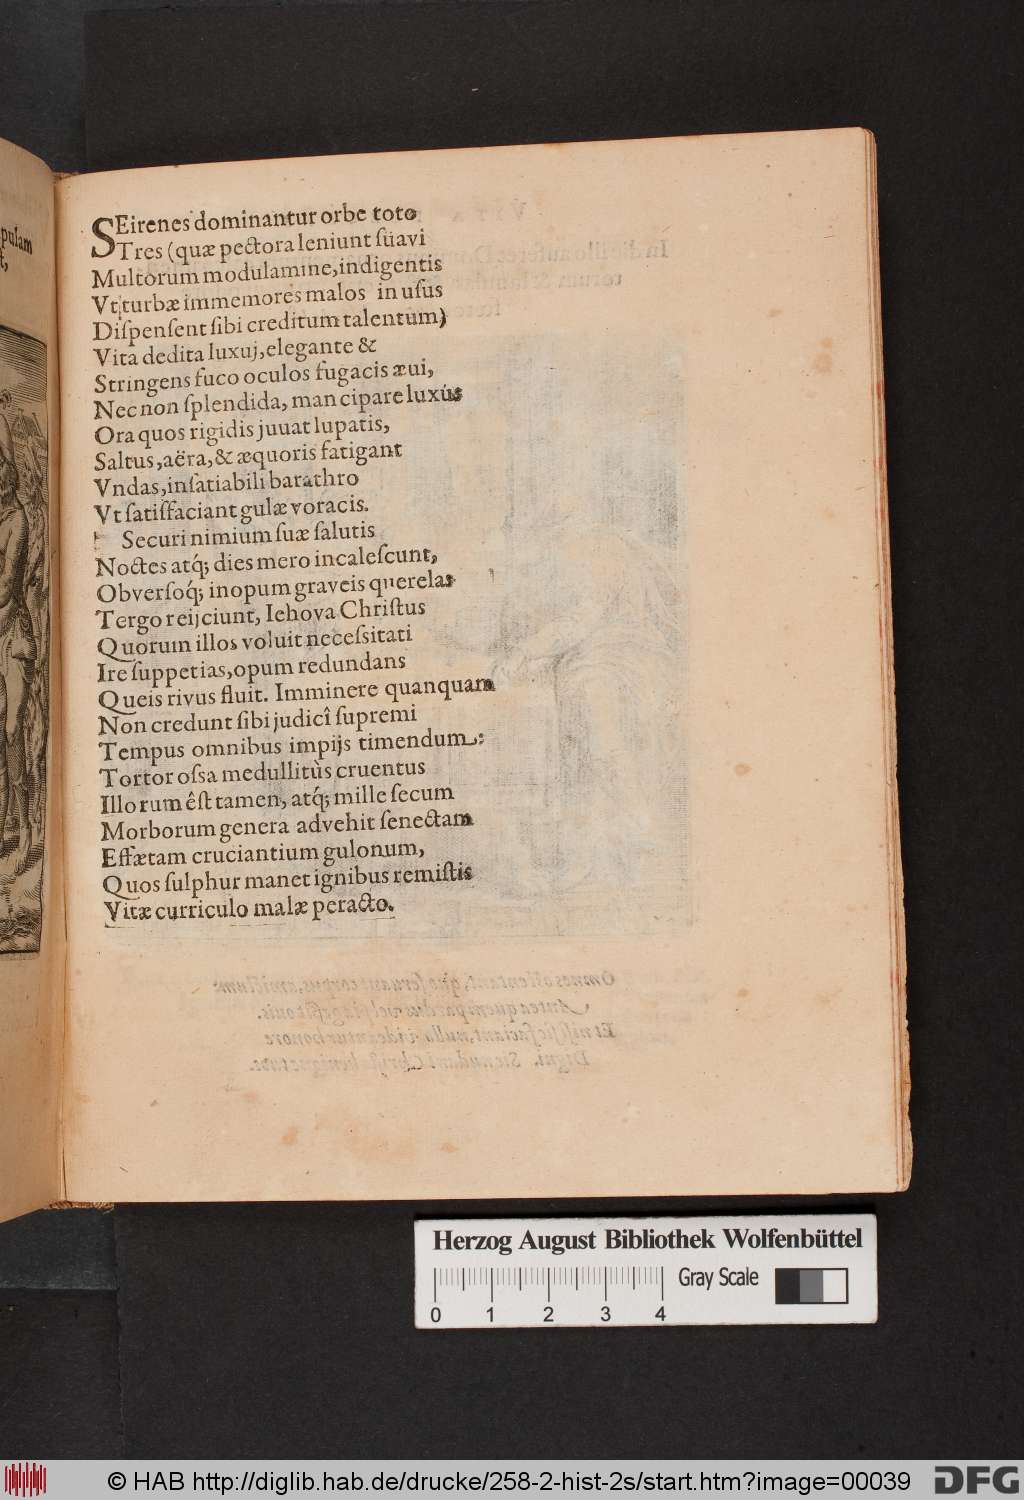 pulam
t,
SEirenes dominantur orbe toto
Tres (quæ pectora leniunt süavi
Multorum modulamine, indigentis
Vt turbæ immemores malos in uſus
Diſpenſent ſibi creditum talentum)
Vita dedita luxuj, elegante &
Stringens fuco oculos fugacis æui,
Nec non ſplendida, mancipare luxús
Ora quos rigidis juuat lupatis,
Saltus, aëra, & æquoris fatigant
Vndas, inſatiabili barathro
Vt ſatiſfaciant gulæ voracis.
Securi nimium ſuæ ſalutis
Noctes atq́; dies mero incaleſcunt,
Obverſoq́; inopum graveis querelas
Tergo reijciunt, Iehova Chriſtus
Quorum illos voluit neceſsitati
Ire ſuppetias, opum redundans
Queis rivus fluit. Imminere quanquam
Non credunt ſibi judicî ſupremi
Tempus omnibus impijs timendum:
Tortor oſsa medullitùs cruentus
Illorum êſt tamen, atq́; mille ſecum
Morborum genera advehit ſenectam
Effætam cruciantium gulonum,
Quos ſulphur manet ignibus remiſtis
Vitæ curriculo malæ peracto.
Herzog August Bibliothek Wolfenbüttel
Gray Scale
0 1 2 3 4
© HAB http://diglib.hab.de/drucke/258-2-hist-2s/start.htm?image=00039
DFG